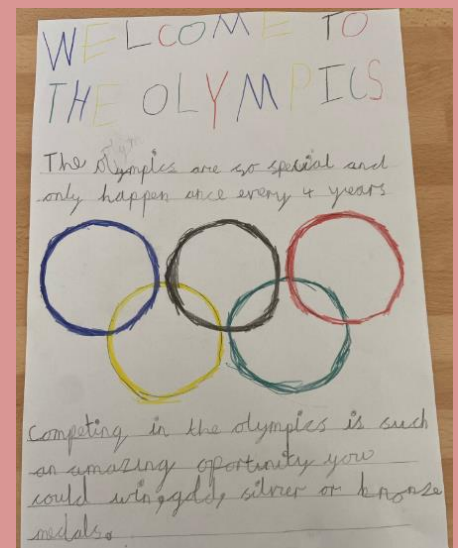 WELCOME TO
THE OLYMPICS
The olympics are so special and
only happen once every 4 years
Competing in the olympics is such
an amazing oportunity you
could win, gold, silver or bronze
medals.